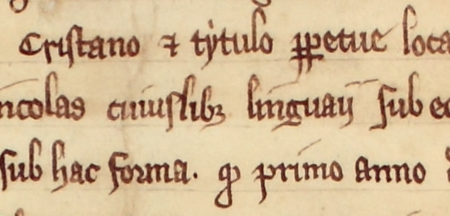 Cristano ⁊ tytulo ꝑpetue loca
ncolas cuiuslibꝫ linguaɳ sub eo
sub hac forma. ꝙ primo anno